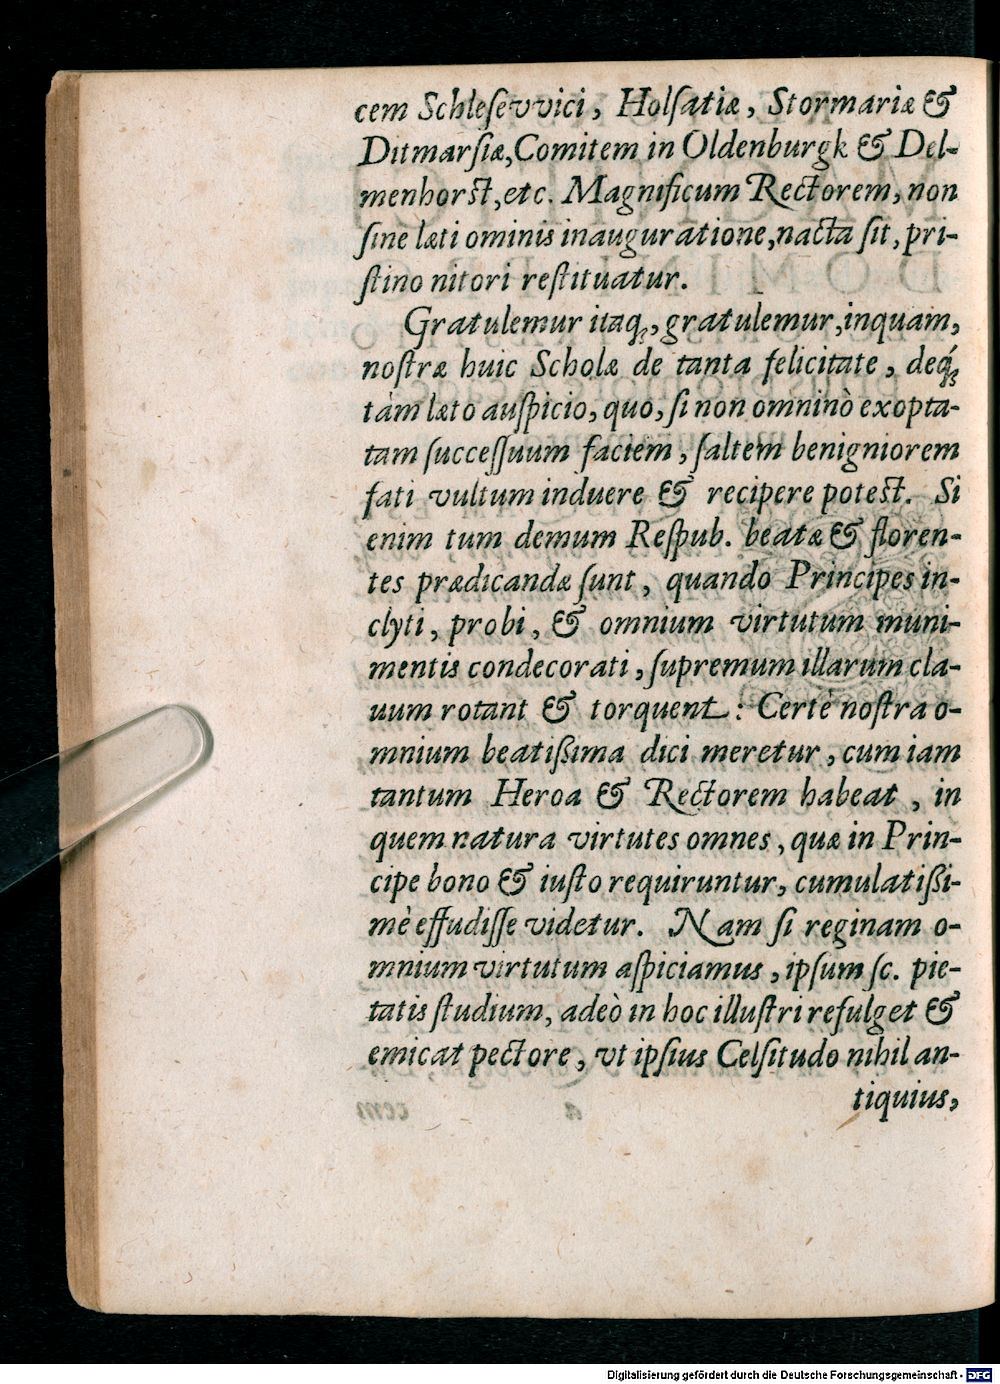 cem Schleſevvici, Holſatiæ, Stormariæ &
Ditmarſiæ, Comitem in Oldenburgk & Del-
menhorſt, etc. Magnificum Rectorem, non
ſine læti ominis inauguratione, nacta ſit, pri-
ſtino nitori reſtituatur.
Gratulemur itaq́ꝫ, gratulemur, inquam,
noſtræ huic Scholæ de tanta felicitate, deq́ꝫ
tàm læto auſpicio, quo, ſi non omninò exopta-
tam ſucceſſuum faciem, ſaltem benigniorem
fati vultum induere & recipere poteſt. Si
enim tum demum Reſpub. beatæ & floren-
tes prædicandæ ſunt, quando Principes in-
clyti, probi, & omnium virtutum muni-
mentis condecorati, ſupremum illarum cla-
uum rotant & torquent: Certè noſtra o-
mnium beatißima dici meretur, cum iam
tantum Heroa & Rectorem habeat, in
quem natura virtutes omnes, quæ in Prin-
cipe bono & iuſto requiruntur, cumulatißi-
mè effudiſſe videtur. Nam ſi reginam o-
mnium virtutum aſpiciamus, ipſum ſc. pie-
tatis ſtudium, adeò in hoc illuſtri refulget &
emicat pectore, vt ipſius Celſitudo nihil an-
tiquius,
Digitalisierung gefördert durch die Deutsche Forschungsgemeinschaft - DFG